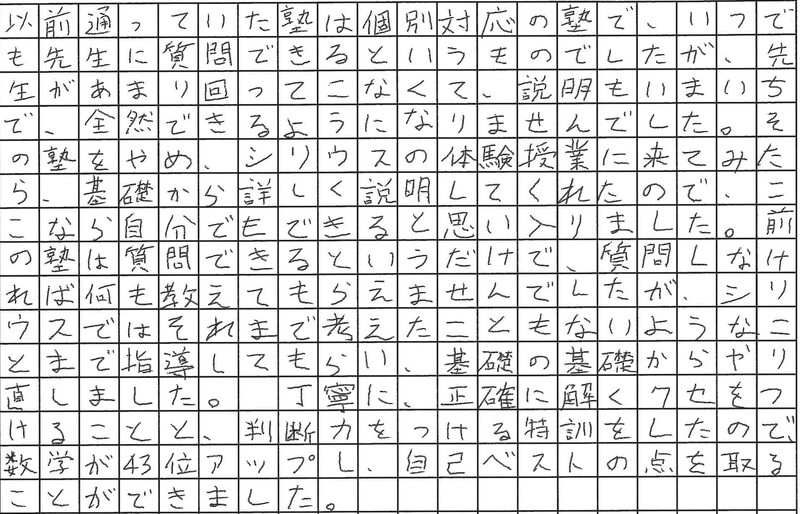 以前通っていた塾は個別対応の塾で、いつで
も先生に質問できるというものでしたが、先
生があまり回ってこなくて、説明もいまいち
で、全然できるようになりませんでした。そ
の塾をやめ、シリウスの体験授業に来てみた
ら、基礎から詳しく説明してくれたので、こ
こなら自分でもできると思い入りました。前
の塾は質問できるというだけで、質問しなけ
れば何も教えてもらえませんでしたが、シリ
ウスではそれまで考えたこともないようなこ
とまで指導してもらい、基礎の基礎からやり
直しました。丁寧に、正確に解くクセをつ
けることと、判断力をつける特訓をしたので、
数学が43位アップし、自己ベストの点を取る
ことができました。